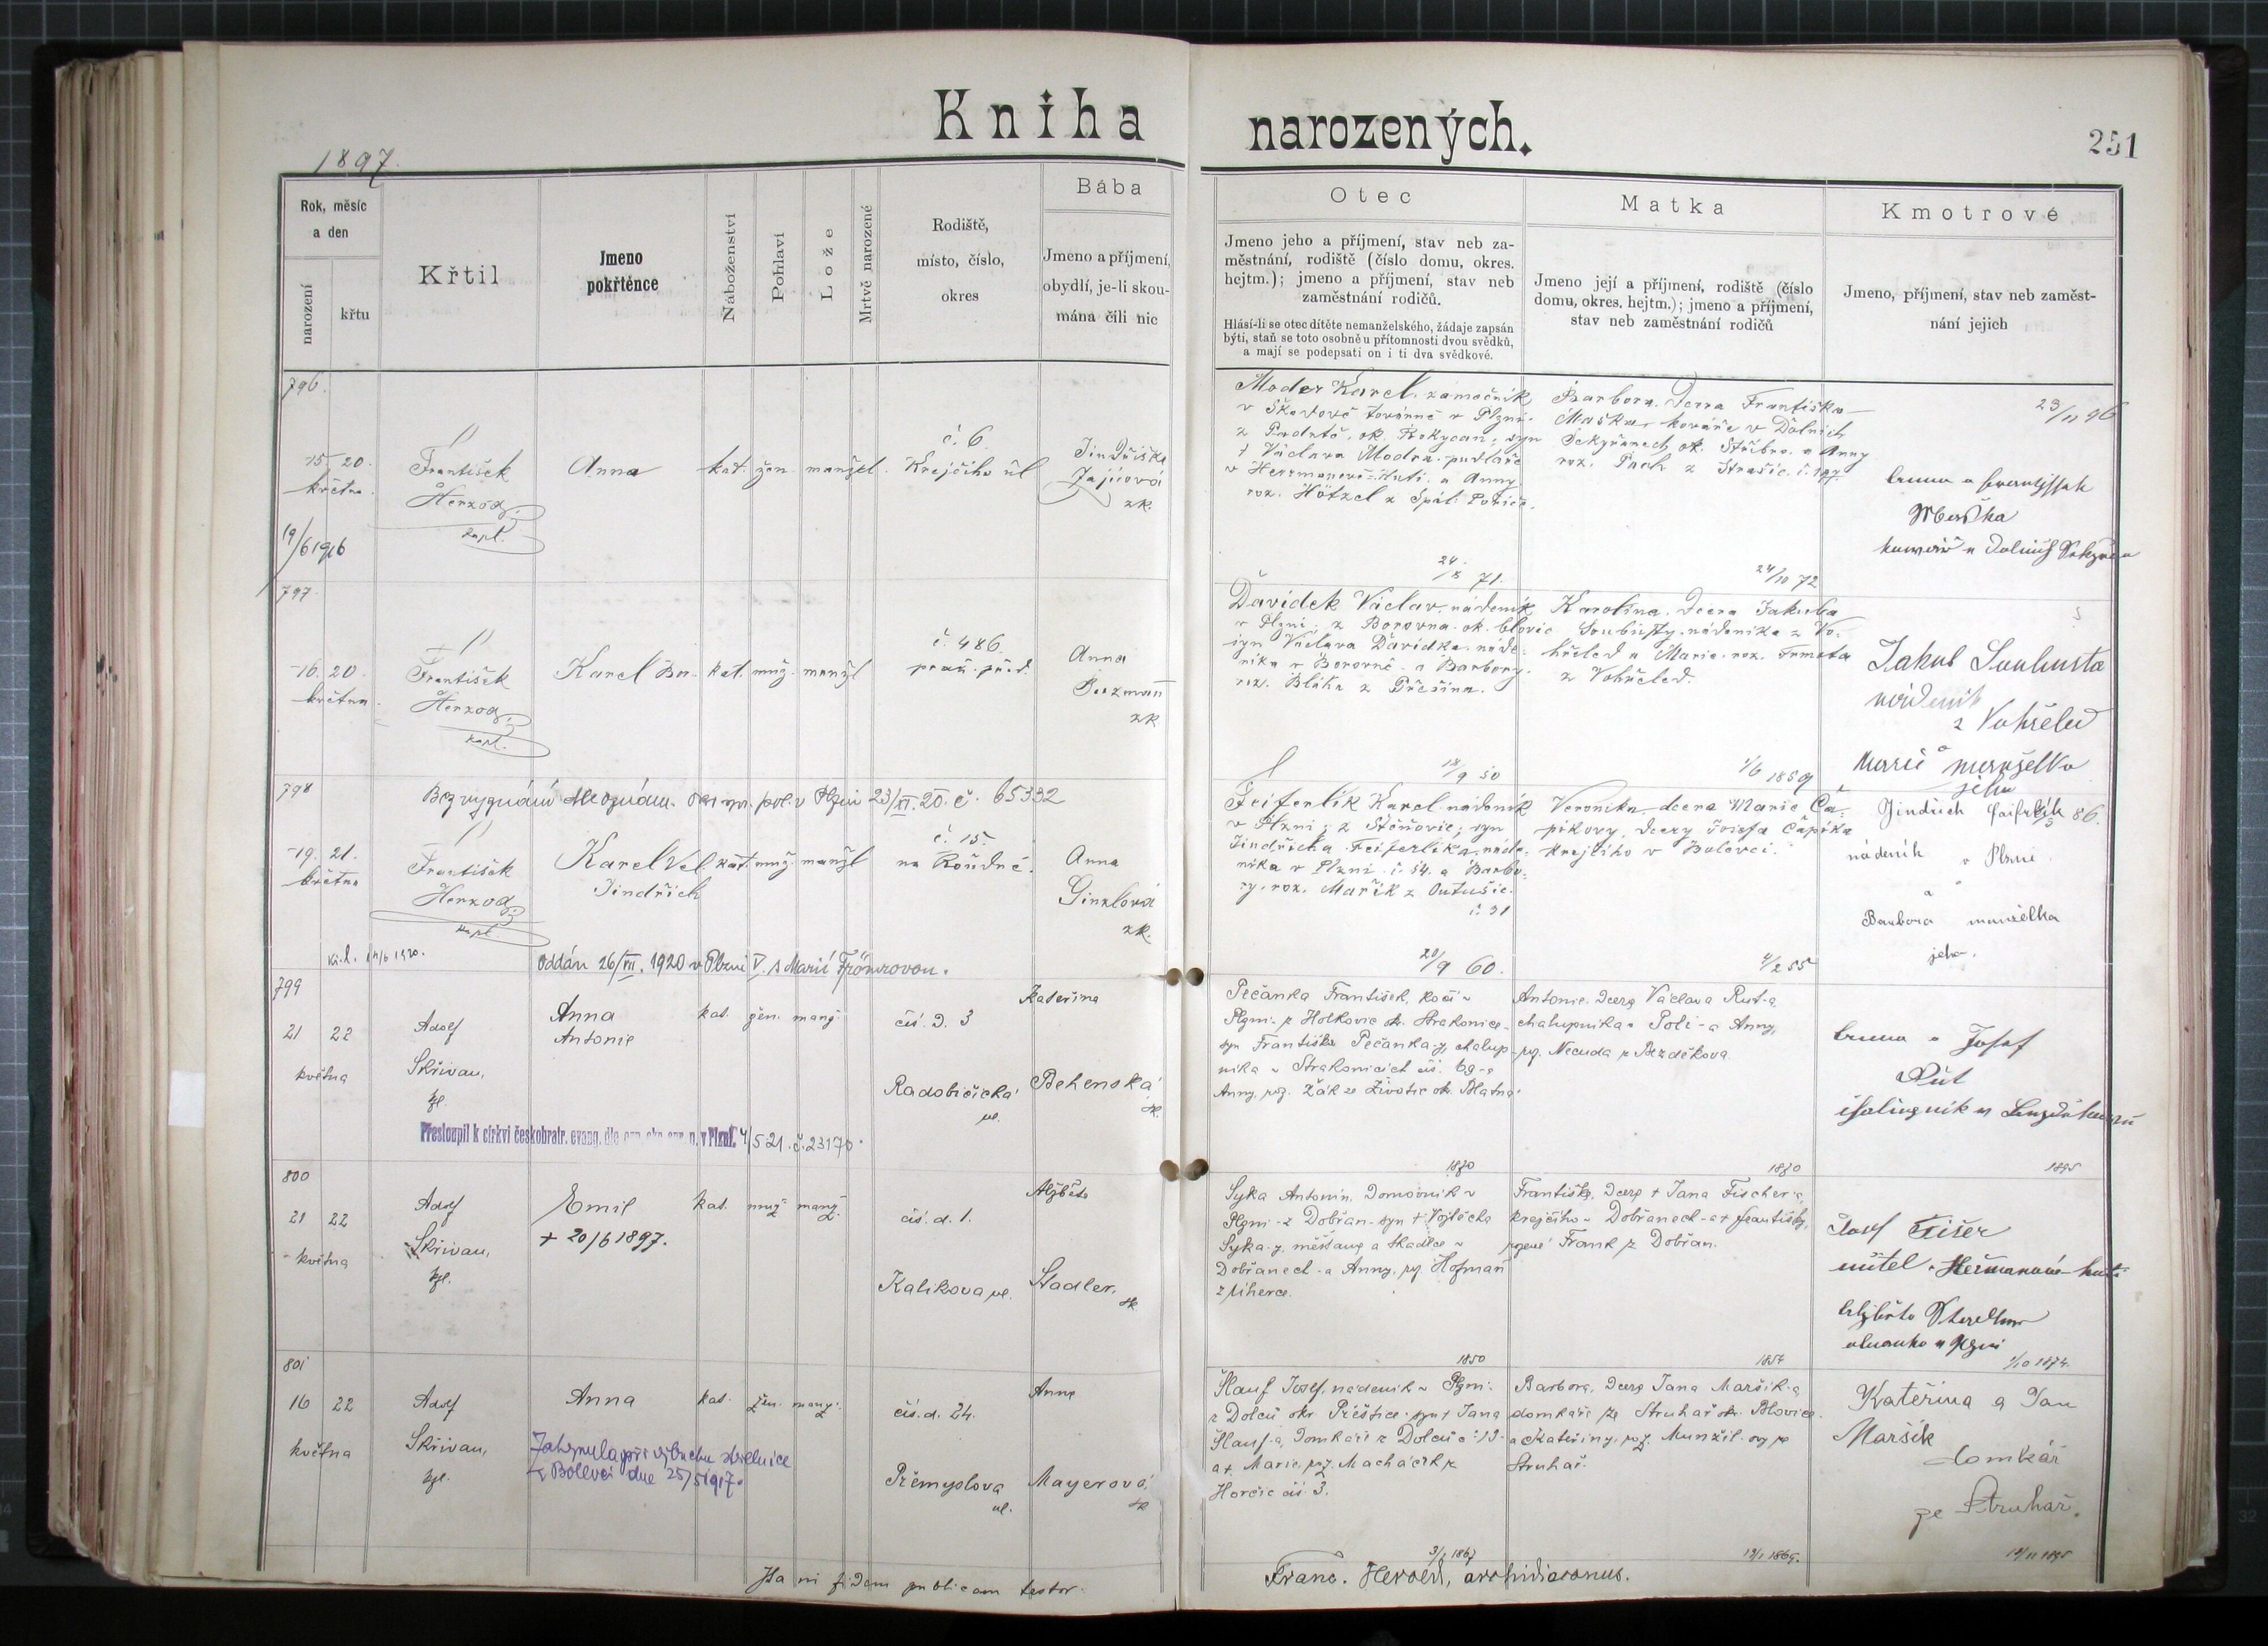 Kniha narozených.
251
1897.
Rok, měsíc
a den
narození
křtu
Křtil
Jmeno
pokřtěnce
Náboženství
Pohlaví
Lože
Mrtvě narozené
Rodiště,
místo, číslo,
okres
Bába
Jmeno a příjmení,
obydlí, je-li skou-
mána čili nic
Otec
Jmeno jeho a příjmení, stav neb za-
městnání, rodiště (číslo domu, okres.
hejtm.); jmeno a příjmení, stav neb
zaměstnání rodičů.
Hlásí-li se otec dítěte nemanželského, žádaje zapsán
býti, staň se toto osobně u přítomnosti dvou svědků,
a mají se podepsati on i ti dva svědkové.
Matka
Jmeno její a příjmení, rodiště (číslo
domu, okres. hejtm.); jmeno a příjmení,
stav neb zaměstnání rodičů
Kmotrové
Jmeno, příjmení, stav neb zaměst-
nání jejich
796.
15. 20.
května
19/6 1916
František
Herzog
kapl.
Anna
kat. žen. manžel.
č. 6.
Krejčího ul
Jindřiška
zk.
Moder Karel, zámečník
v Škodově továrně v Plzni.
z Padrtě, ok. Rokycan; syn
† Václava Modra, pudláře
v Heřmanově-Huti, a Anny
roz. Hötzel z Spál. Poříčí.
24/8 71.
Barbora, dcera Františka
Maška, kováře v Dolních
Sekyřanech ok. Stříbro, a Anny
roz. Pach z Strašic č. 197.
24/10 72
23/11 96
Anna a František
Maška
797.
16. 20.
května.
František
Herzog
kapl.
Karel Bor.
kat. muž. manžl
č. 486.
praž. před.
Anna
zk
Davídek Václav, nádeník
v Plzni; z Borovna, ok. blovic
syn Václava Davídka, náde-
níka v Borovně, a Barbory,
roz. Bláha z Přešína.
12/9 50
Karolina, dcera Jakuba
Soubusty, nádeníka z Vo-
hřeled a Marie, roz. Trmata
z Vohřeled.
1/6 1859
Jakub Soubusta
nádeník
z Vohřeled
Marie manželka
jeho
798
Bez vyznání dle oznám. okr. spr. pol. v Plzni 23/XI. 20. č. 65332
19. 21.
května
František
Herzog
kapl.
Karel Vel
Jindřich
kat. muž. manžl
č. 15.
na Roudné.
Anna
Ginzlová
zk.
Feiferlik Karel, nádeník
v Plzni; z Štěnovic; syn
Jindřicha Feiferlíka, náde-
níka v Plzni č. 54. a Barbo-
ry, roz. Mařík z Outušic.
č. 31
20/9 60.
Veronika, dcera Marie Ča-
píkovy, dcery Josefa Čapíka
krejčího v Bolevci.
4/2 55
86.
nádeník v Plzni
a
Barbora manželka
jeho.
Oddán 26/VII. 1920 v Plzni V. s Marií Frömrovou.
799
21 22
května
Adolf
Skřivan,
kpl.
Anna
Antonie
kat. žen. manž.
čís. d. 3
Radobičická
ul.
Kateřina
Behenská,
zk.
Přestoupil k církvi českobratr. evang. dle v Plzni 4/5 21. č. 23170.
Pečanka František, kočí v
Plzni - z Holkovic ok. Strakonice,
syn Františka Pečanka-y, chalup-
níka v Strakonicích čís. 69 - a
Anny, roz. Žák ze Životic ok. Blatná.
1870
Antonie, dcera Václava Rut-a,
chalupníka v Poli - a Anny,
roz. Necuda z Bezděkova.
1870
Anna a Josef
Rüt
1895
800
21 22
května
Adolf
Skřivan,
kpl.
Emil
+ 20/6 1897.
kat. muž. manž.
čís. d. 1.
Kalikova ul.
Alžběta
Stadler,
zk.
Syka Antonín, domovník v
Plzni - z Dobřan - syn † Vojtěcha
Syka-y, měšťana a tkadlce v
Dobřanech - a Anny, roz. Hofman
z Liherce.
1850
Františka, dcera † Jana Fischer-a,
krejčího v Dobřanech - a † Františky,
rozené Frank z Dobřan.
1854
Josef Fišer
učitel v Heřmanově huti
1/10 1874.
801
16 22
května
Adolf
Skřivan,
kpl.
Anna
Zahynula při výbuchu střelnice
v Bolevci dne 25/5 1917.
kat. žen. manž.
čís. d. 24.
Přemyslova
ul.
Anna
Mayerová,
zk
Šlauf Josef, nádeník v Plzni -
z Dolců okr. Přeštice - syn † Jana
Šlauf-a, domkáře z Dolců č. 13 -
a †. Marie, roz. Macháček z
Horčic čís. 3.
3/1 1867
Barbora, dcera Jana Maršík-a
domkáře ze Struhař ok. Blovice.
a Kateřiny, roz. Munžil-ovy ze
Struhař.
12/1 1869.
Kateřina a Jan
Maršík
domkář
ze Struhař.
12/11 1895
Ita in fidem publicam testor.
Franc. Herold, archidiaconus.